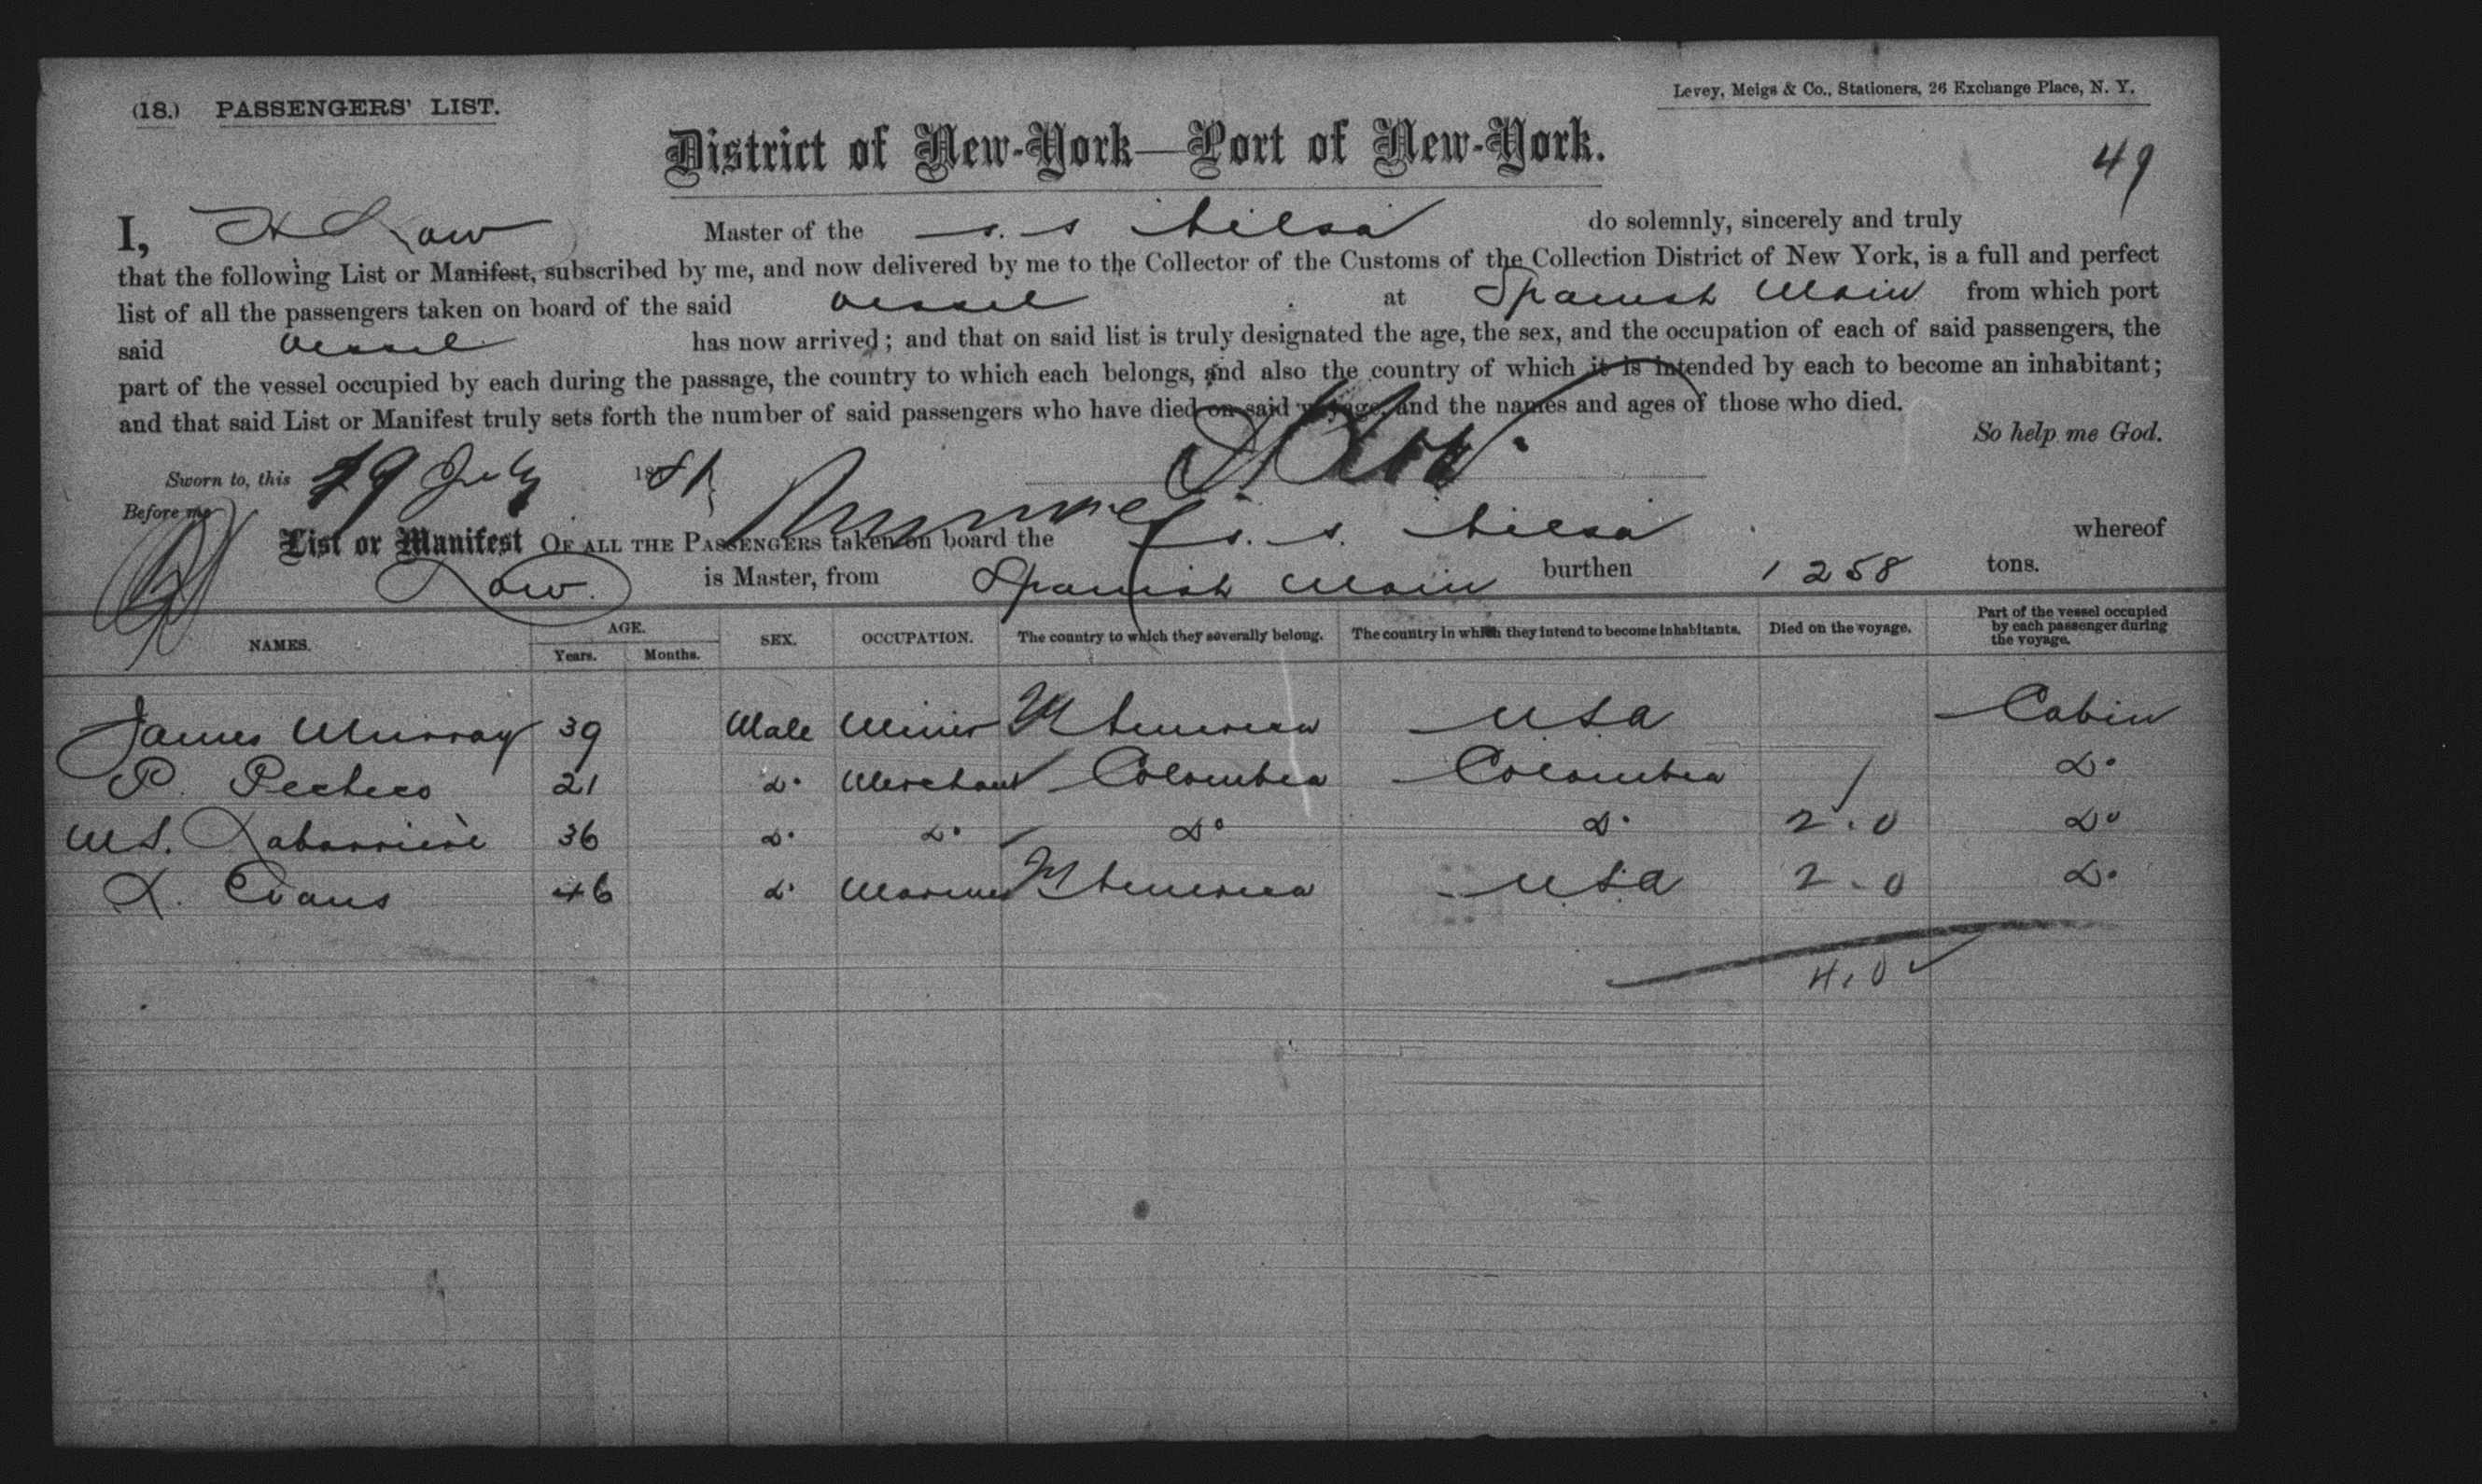 (18.) PASSENGERS' LIST.
Levey, Meigs & Co., Stationers, 26 Exchange Place, N. Y.
District of New-York—Port of New-York.
49
I, Low Master of the s. s do solemnly, sincerely and truly
that the following List or Manifest, subscribed by me, and now delivered by me to the Collector of the Customs of the Collection District of New York, is a full and perfect
list of all the passengers taken on board of the said vessel at Spanish Main from which port
said vessel has now arrived; and that on said list is truly designated the age, the sex, and the occupation of each of said passengers, the
part of the vessel occupied by each during the passage, the country to which each belongs, and also the country of which it is intended by each to become an inhabitant;
and that said List or Manifest truly sets forth the number of said passengers who have died on said voyage, and the names and ages of those who died.
So help me God.
Sworn to, this 29 July 1881
Before me
List or Manifest OF ALL THE PASSENGERS taken on board the s. s. whereof
Low. is Master, from Spanish Main burthen 1258 tons.
NAMES. AGE. Years. Months. SEX. OCCUPATION. The country to which they severally belong. The country in which they intend to become inhabitants. Died on the voyage. Part of the vessel occupied by each passenger during the voyage.
James Murray 39 Male Miner America U.S.A Cabin
P. 21 Do Merchant Colombia Colombia / Do
W S. Labarrière 36 Do Do Do Do 2.0 Do
L. Evans 46 Do Mariner America U.S.A 2.0 Do
4.0